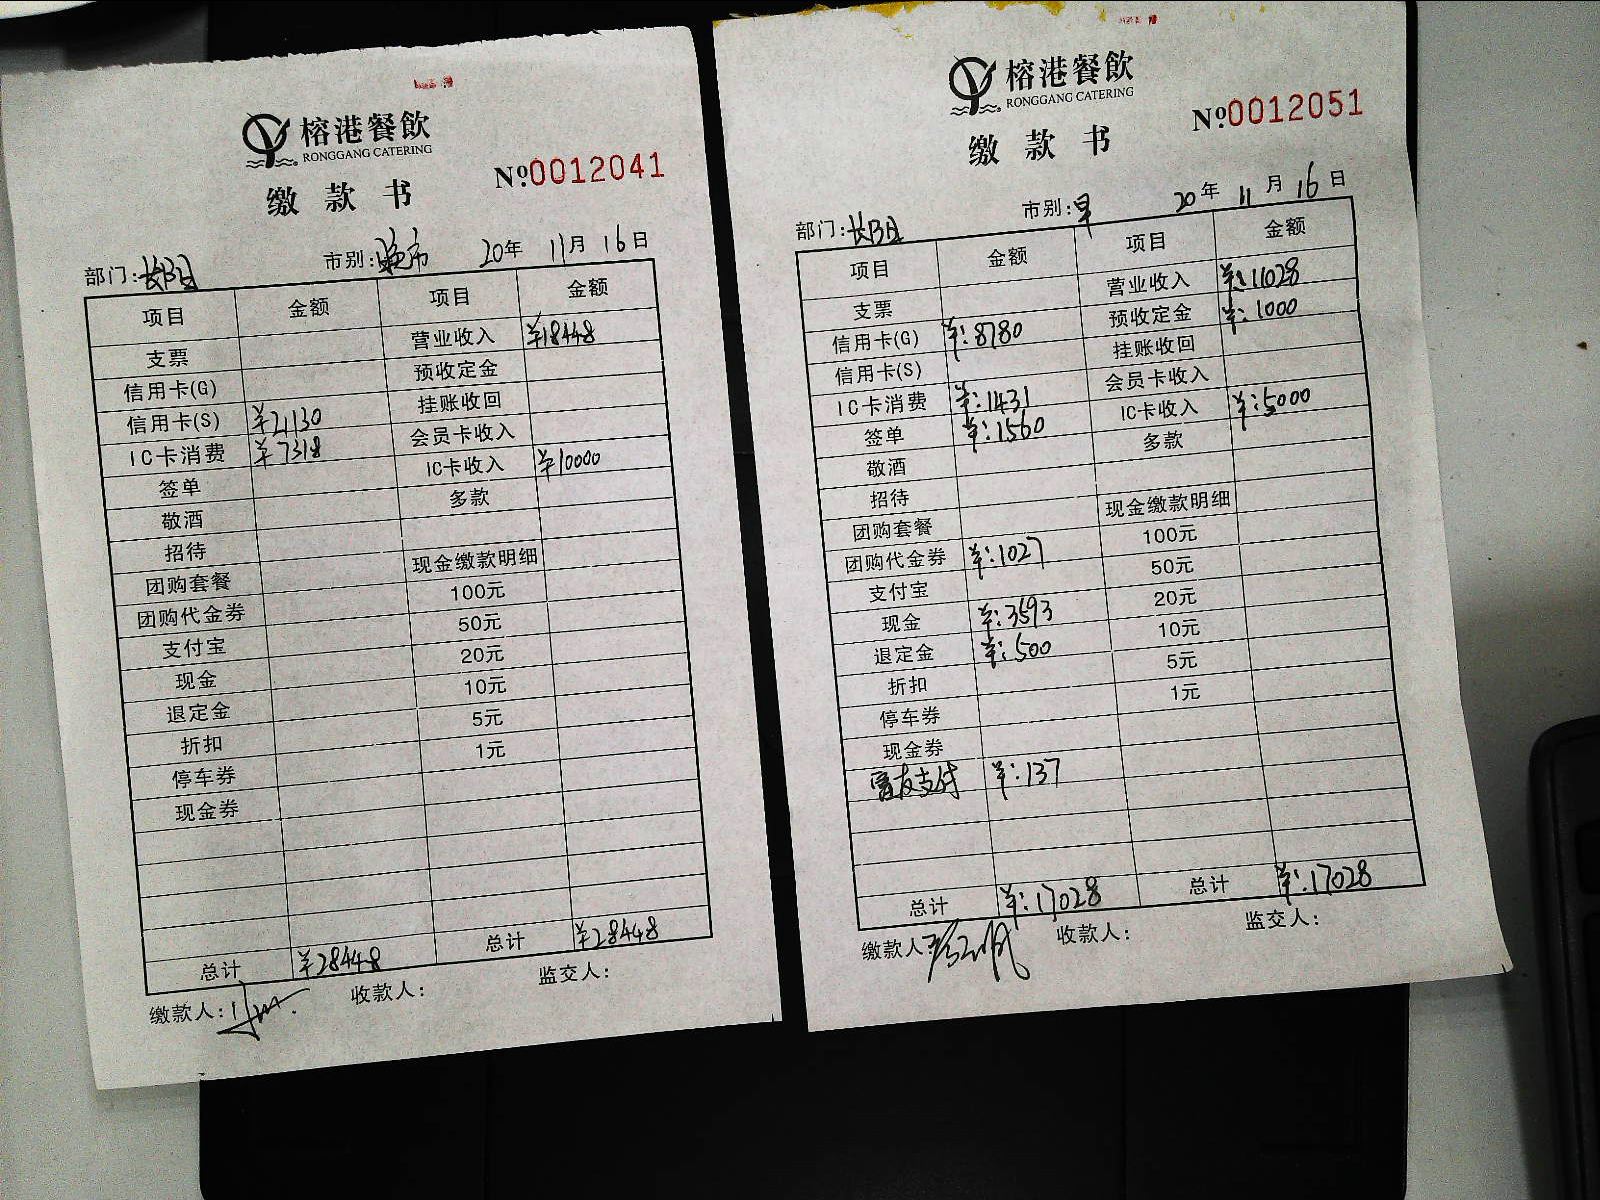 榕港餐飲
RONGGANG CATERING
缴款书
№0012041
部门: 市别:晚市 20年 11月 16日
项目 金额 项目 金额
支票 营业收入 ¥18448
信用卡(G) 预收定金
信用卡(S) ¥21130 挂账收回
IC卡消费 ¥7318 会员卡收入
签单 IC卡收入 ¥10000
敬酒 多款
招待
团购套餐 现金缴款明细
团购代金券 100元
支付宝 50元
现金 20元
退定金 10元
折扣 5元
停车券 1元
现金券
总计 ¥28448 总计 ¥28448
缴款人: 收款人: 监交人:
榕港餐飲
RONGGANG CATERING
缴款书
№0012051
部门: 市别:早 20年 11月 16日
项目 金额 项目 金额
支票 营业收入 ¥:11028
信用卡(G) ¥:8780 预收定金 ¥:1000
信用卡(S) 挂账收回
IC卡消费 ¥:1431 会员卡收入
签单 ¥:1560 IC卡收入 ¥:5000
敬酒 多款
招待
团购套餐 现金缴款明细
团购代金券 ¥:1027 100元
支付宝 50元
现金 ¥:3593 20元
退定金 ¥:500 10元
折扣 5元
停车券 1元
现金券
富友支付 ¥:137
总计 ¥:17028 总计 ¥:17028
缴款人: 收款人: 监交人: